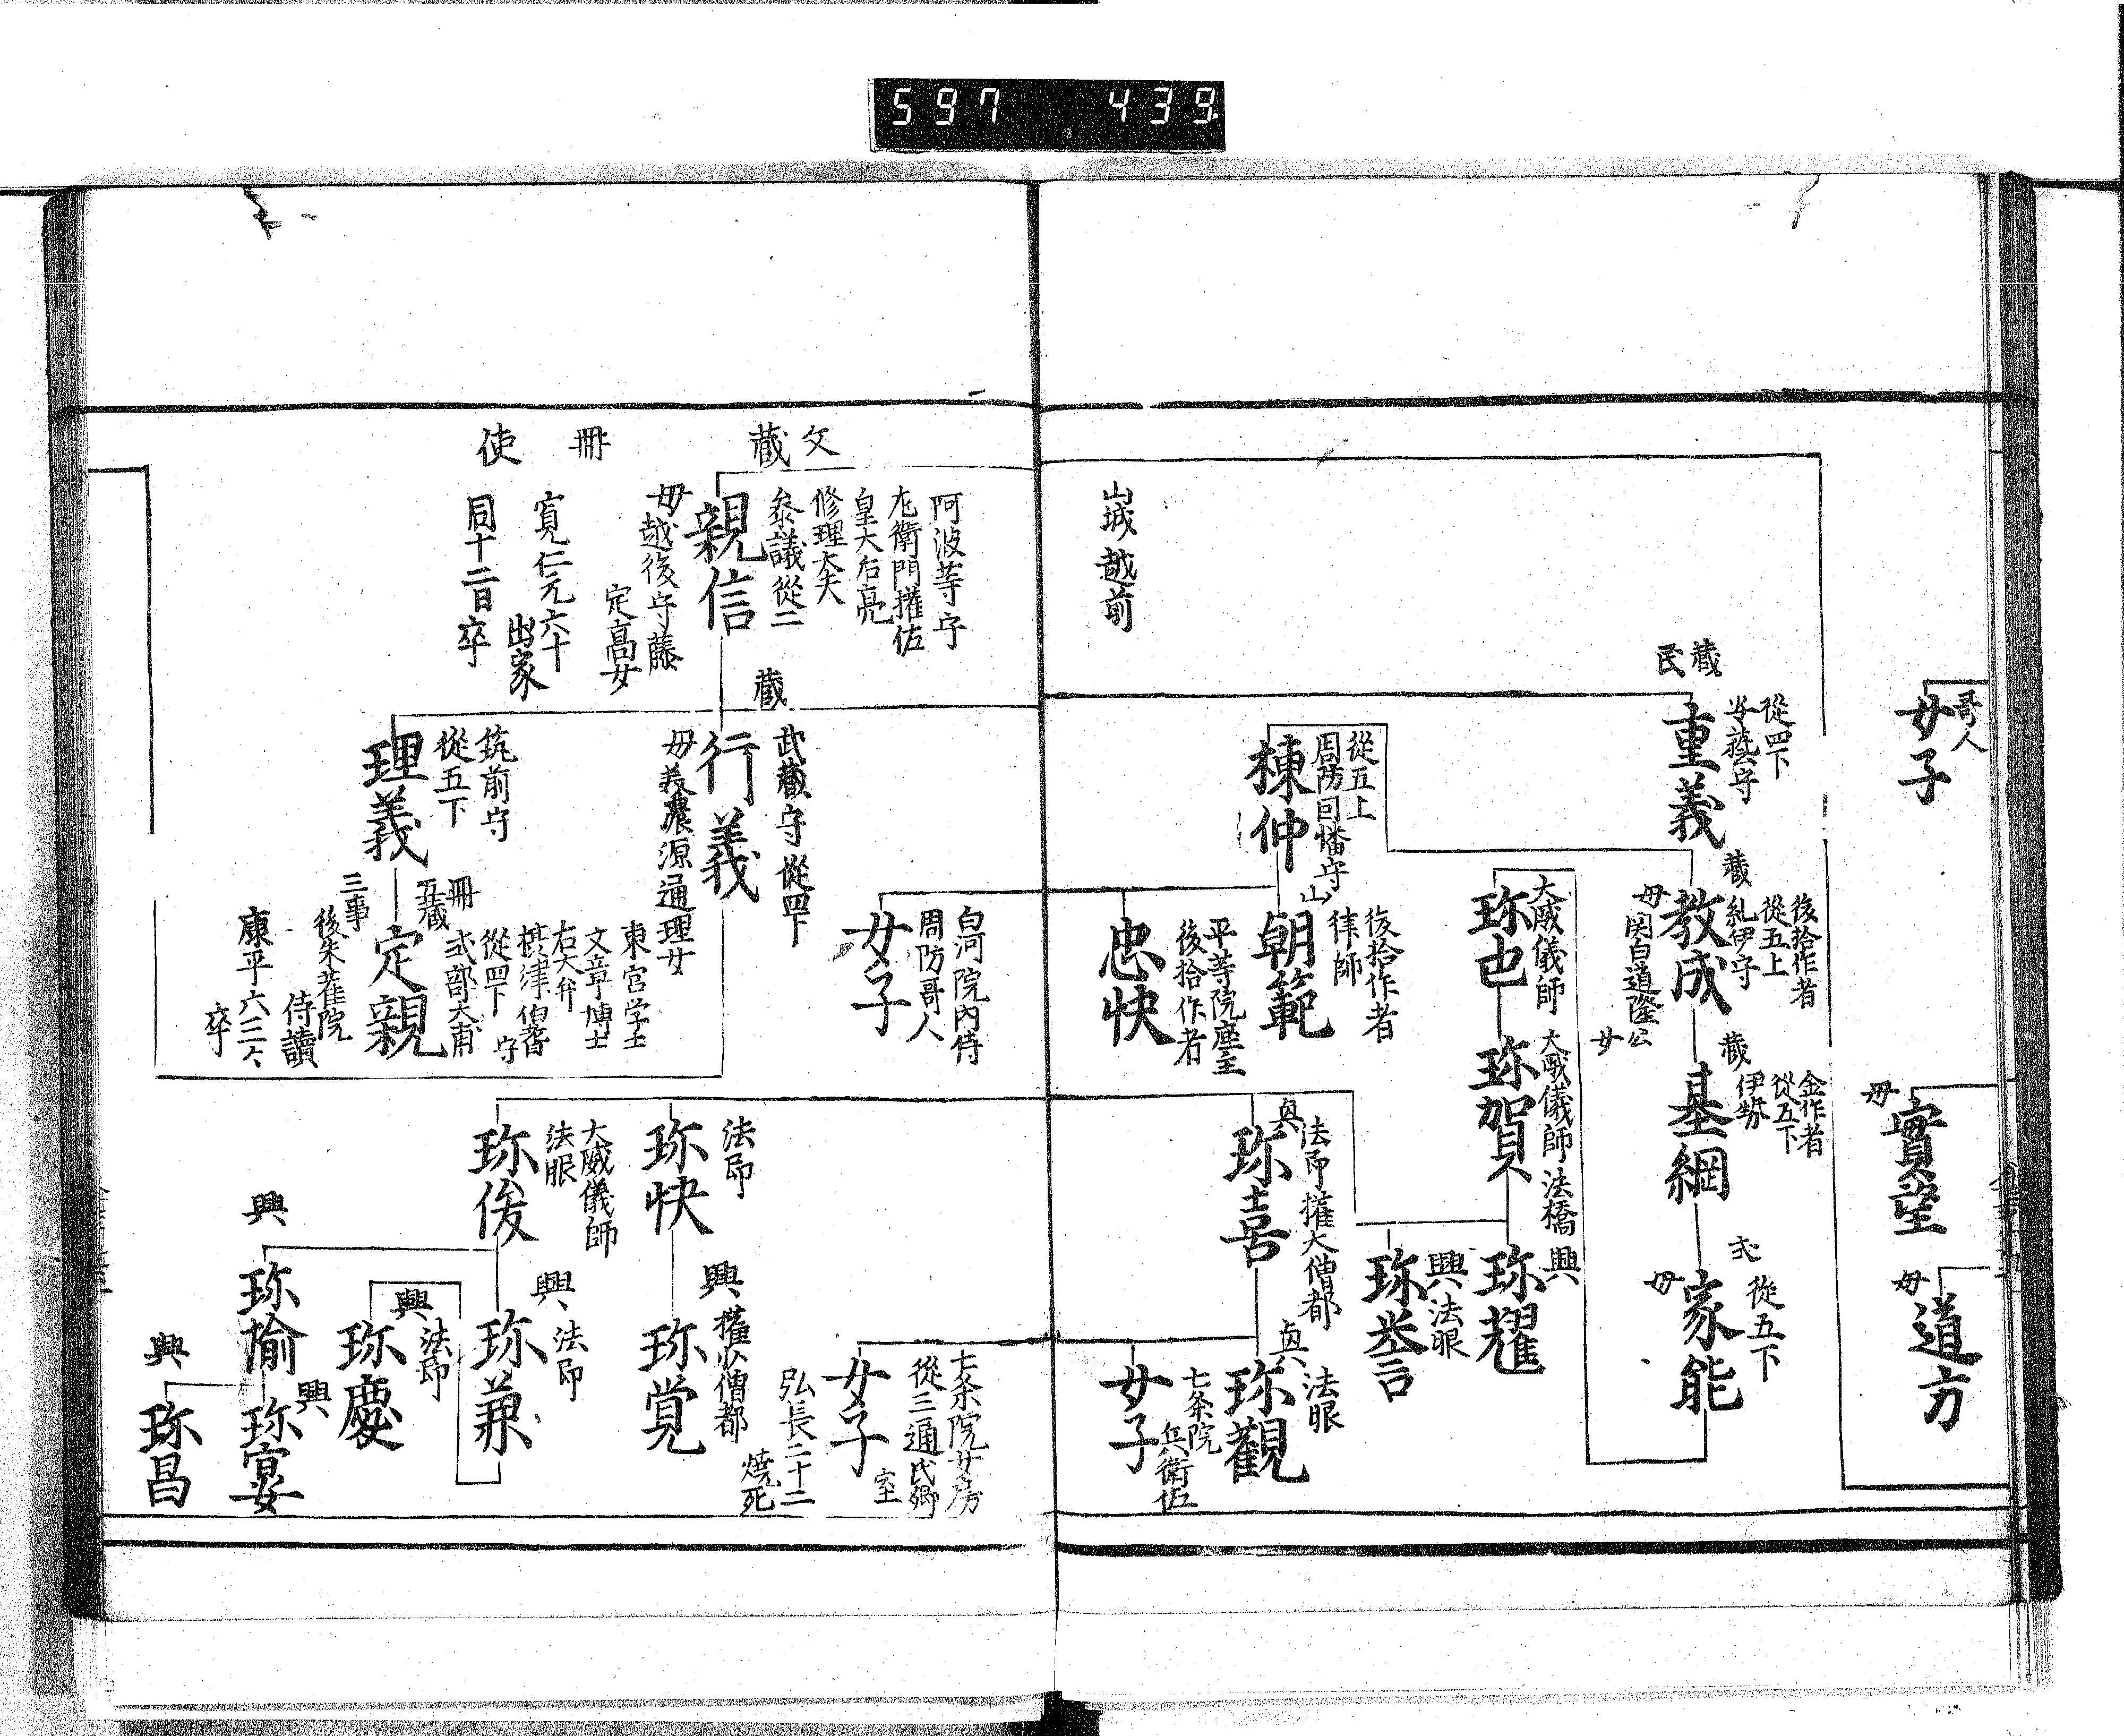 597 439
哥人
女子
母
實望
母
道方
蔵
民
從四下
安藝守
重義
蔵
後拾作者
從五上
紀伊守
教成
母関白道隆公
女
蔵
金作者
從五下
伊勢
基綱
式
從五下
家能
母
大威儀師
珎也
大威儀師法橋
珎賀
興
珎耀
興法眼
珎誉
從五上
周防因幡守
棟仲
山
後拾作者
律師
朝範
平等院座主
後拾作者
忠快
法印權大僧都
珎喜
法眼
珎觀
七条院
兵衛佐
女子
山城越前
白河院内侍
周防哥人
女子
七条院女房
從三通氏卿
室
女子
弘長二十二
焼死
文
蔵
阿波等守
左衛門權佐
皇太后亮
修理大夫
参議從二
親信
母越後守藤
定高女
冊
使
寛仁元六十
出家
同十二日卒
蔵
武蔵守從四下
行義
母義濃源通理女
筑前守
從五下
理義
冊
五蔵
三事
東宮学士
文章博士
右大弁
摂津伯耆
守
從四下
式部大甫
定親
後朱雀院
侍讀
康平六三
卒
法印
珎快
興
權少僧都
珎覚
大威儀師
法眼
珎俊
興
法印
珎兼
興
法印
珎慶
興
珎愉
興
珎宴
興
珎昌